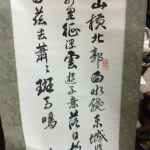 山橫北郭白水繞東城
萬里征浮雲遊子意落日
自茲去蕭蕭班馬鳴